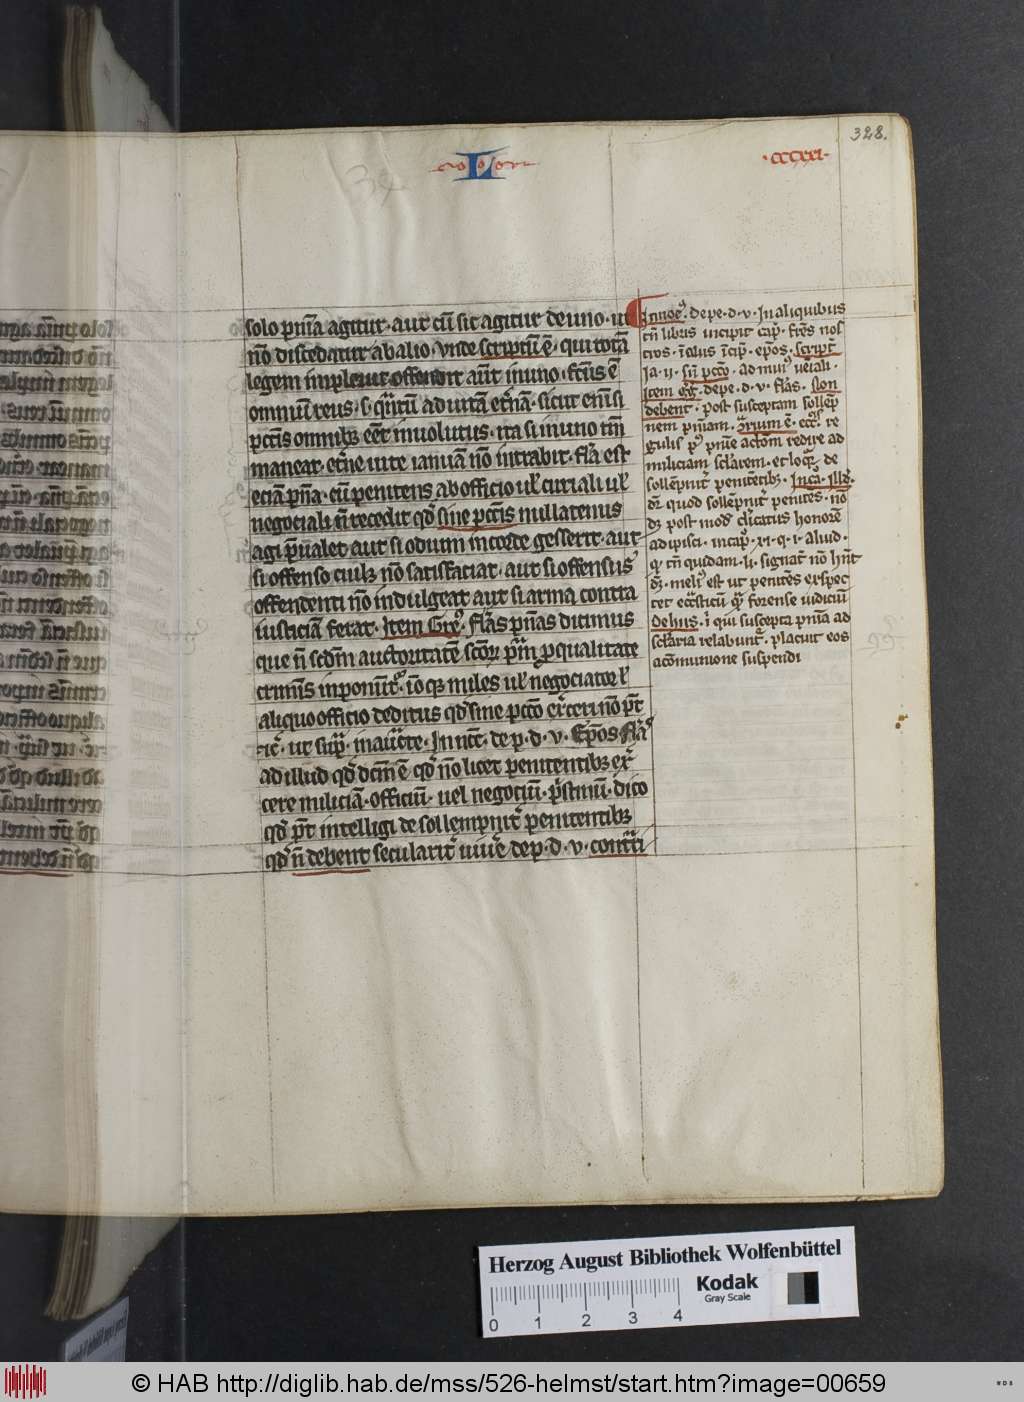 328.
·ccccxi·
L
solo pn̄ia agitur· aut cū sic agitur de uno· ut
nō discedatur ab alio· vnde scriptū ē· qui totā
legem impleuit offendit aūt in uno· fc̄us ē
omnium reus· s· q̄ntū ad uitā et̄nā· sicut eni si
pcc̄is omnibꝫ eēt inuolutus· ita si in uno tm̄
maneat· et̄ne uite ianuā nō intrabit· fl̄a est
eciā pn̄a· cū penitens ab officio ul̄ curiali ul̄
negociali n̄ recedit qd̄ sine pcc̄is nullatenus
agi p̄ualet aut si odium in corde gesserit· aut
si offenso cuilꝫ nō satisfaciat· aut si offensus
offendenti nō indulgeat aut si arma contra
iusticiā ferat· Item Gre᷒· fl̄as pn̄as dicimus
que n̄ sc̄dm auctoritatē sc̄oꝝ pr̄m ꝓ qualitate
criminis inponūt᷑· iō qꝫ miles ul̄ negociator l̄
alicquo officio deditus qd̄ sine pcc̄o ex̄ceri nō pt̄
ic̄· ut sup̄· in auctē· Innoc̄· de p· d· v· Ep̄os fl̄a᷒
ad illud qd̄ dc̄m ē qd̄ nō licet penitentibꝫ ex̄
cere miliciā· officiū· uel negociū· p̄stinū· dico
qd̄ pt̄ intelligi de sollempnit᷑ penitentibꝫ
qd̄ n̄ debent secularit᷑ uiue᷑ de p· d· v· contrͥi
Innoc̄᷒· de pe· d· v· In aliquibus
tn̄ libris incipit cap̄· fr̄es nos
tros· ī aliis īcip̄· ep̄os· script᷑
ia· ii· sū pcc̄o· ad mui᷒ ueiali·
Item Gg̅· de pe· d· v· fl̄as· slon
debent· post susceptam sollēp
nem pn̄iam· 9̄rium ē· ecc̄ꝭ re
gulis p᷒ pn̄ie actōm redire ad
miliciam sc̄larem· et loq᷑· de
sollēpnit᷑ penitētibꝫ· In ca᷒· ill᷒·
dr̄ quod sollēpnit᷑ penitēs· nō
dꝫ post mod᷒ clicatus honorē
adipisci· in cap᷒· xi· q· i· aliud·
q᷒ tn̄ quidam· li· signat᷒ nō hn̄t
dꝫ· meli᷒ est ut penitēs expec
tet ecc̄sticū q̄ forense iudiciū
De hiis· ī qui suscepta pn̄ia ad
sc̄laria relabunt᷑· placuit eos
a cōmunione suspendi
Herzog August Bibliothek Wolfenbüttel
0 1 2 3 4
Kodak
Gray Scale
© HAB http://diglib.hab.de/mss/526-helmst/start.htm?image=00659